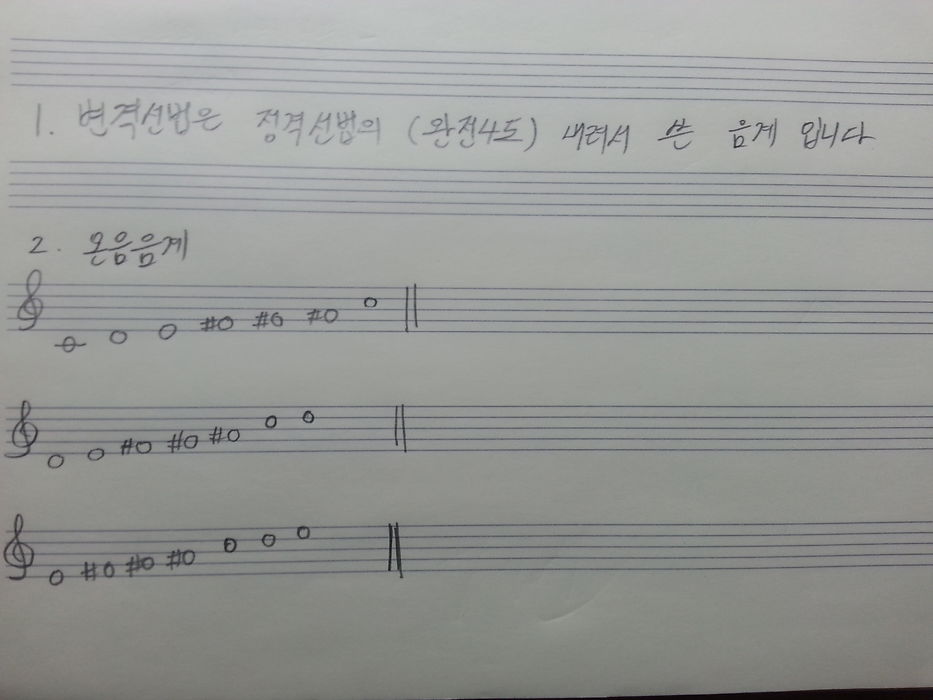 1. 변격선법은 정격선법의 (완전4도) 내려서 쓴 음계 입니다
2. 온음음계